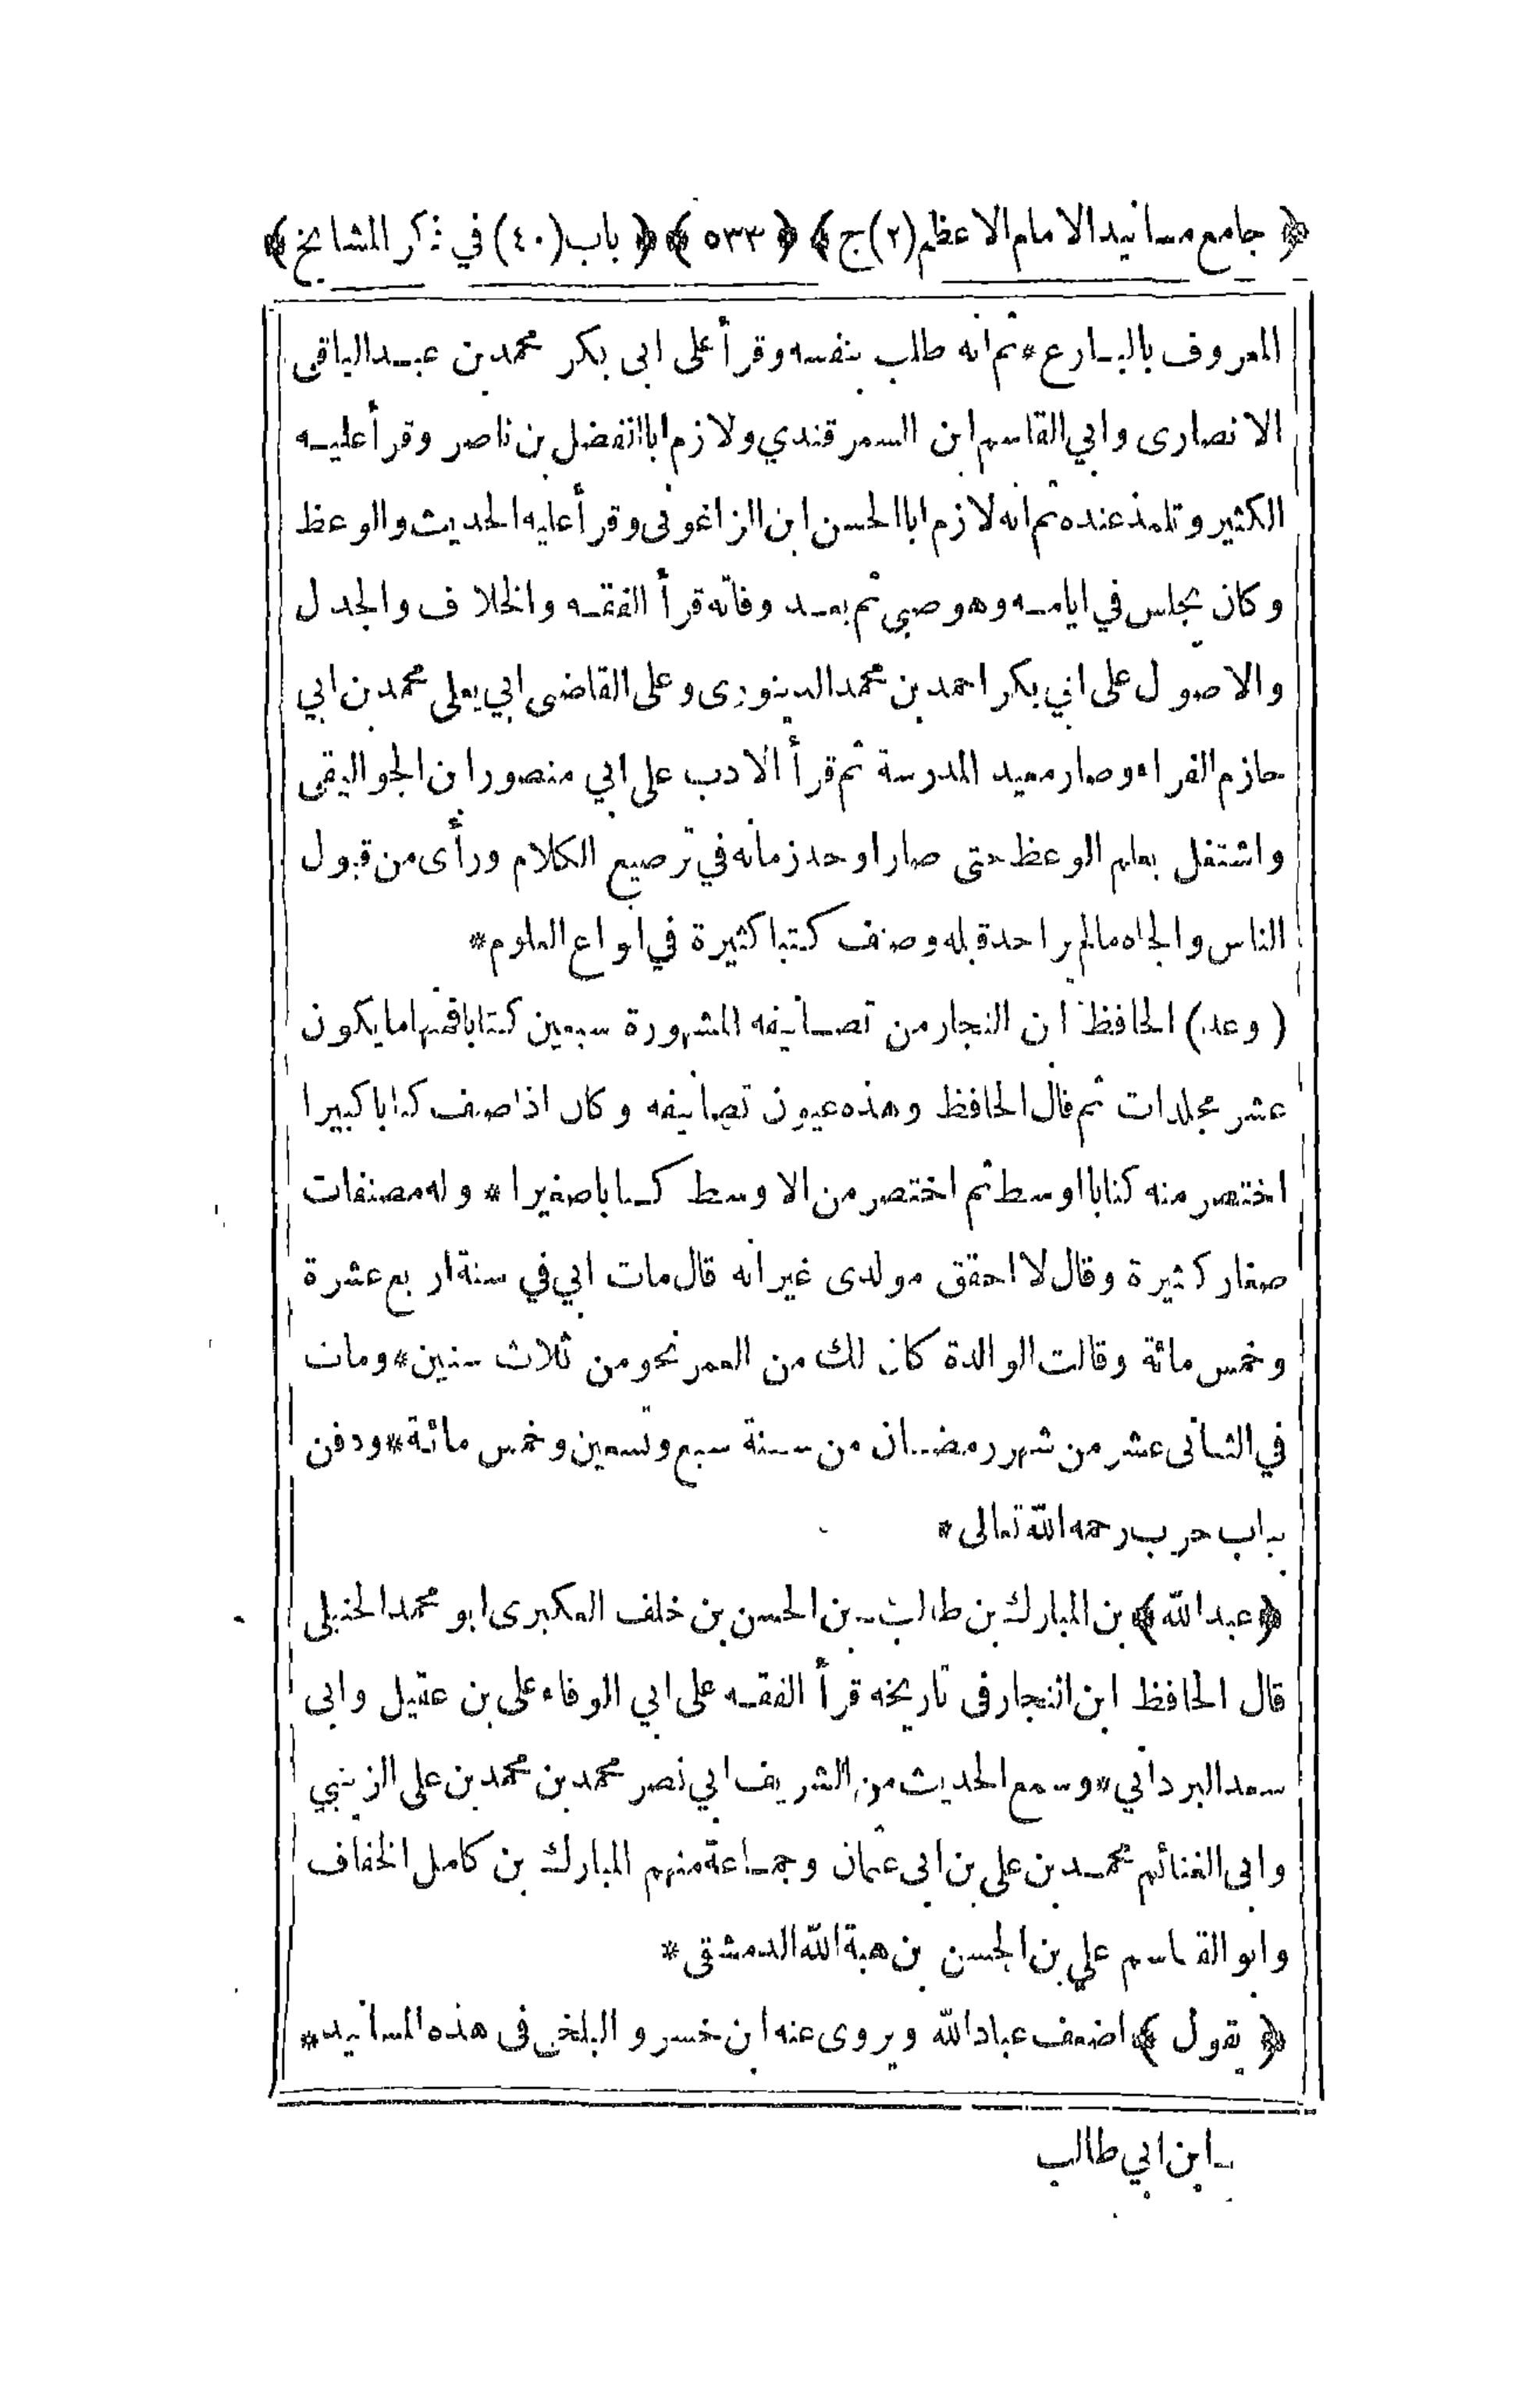 ﴿ جامع مسانيد الامام الاعظم (٢) ج ﴾ ﴿ ٥٣٣ ﴾ ﴿ باب (٤٠) في ذكر المشايخ ﴾
المعروف بالبارع * ثم انه طلب بنفسه وقرأ على ابى بكر محمد بن عبد الباقى
الانصارى وابي القاسم ابن السمرقندي ولازم ابا الفضل بن ناصر وقرأ عليه
الكثير وتلمذ عنده ثم انه لازم ابا الحسن ابن الزاغونى وقرأ عليه الحديث والوعظ
وكان يجلس في ايامه وهو صبي ثم بعد وفاته قرأ الفقه والخلاف والجدل
والاصول على ابي بكر احمد بن محمد الدينورى وعلى القاضى ابي يعلى محمد بن ابي
حازم الفراء وصار معيد المدرسة ثم قرأ الادب على ابي منصور ابن الجواليقى
واشتغل بعلم الوعظ حتى صار اوحد زمانه في ترصيع الكلام ورأى من قبول
الناس والجاه مالم ير احد قبله وصنف كتبا كثيرة في انواع العلوم *
(وعد) الحافظ ابن النجار من تصانيفه المشهورة سبعين كتابا فمنها ما يكون
عشر مجلدات ثم قال الحافظ وهذه عيون تصانيفه وكان اذا صنف كتابا كبيرا
اختصر منه كتابا اوسط ثم اختصر من الاوسط كتابا صغيرا * وله مصنفات
صغار كثيرة وقال لا احقق مولدى غير انه قال مات ابي في سنة اربع عشرة
وخمس مائة وقالت الوالدة كان لك من العمر نحو من ثلاث سنين * ومات
في الثانى عشر من شهر رمضان من سنة سبع وتسعين وخمس مائة * ودفن
بباب حرب رحمه الله تعالى *
﴿ عبد الله ﴾ بن المبارك بن طالب بن الحسن بن خلف العكبرى ابو محمد الحنبلى
قال الحافظ ابن النجار فى تاريخه قرأ الفقه على ابي الوفاء على بن عقيل وابى
سعد البرداني * وسمع الحديث من الشريف ابي نصر محمد بن محمد بن على الزينبي
وابى الغنائم محمد بن على بن ابى عثمان وجماعة منهم المبارك بن كامل الخفاف
وابو القاسم علي بن الحسن بن هبة الله الدمشقى *
﴿ يقول ﴾ اضعف عباد الله ويروى عنه ابن خسرو البلخى فى هذه المسانيد *
ابن ابي طالب